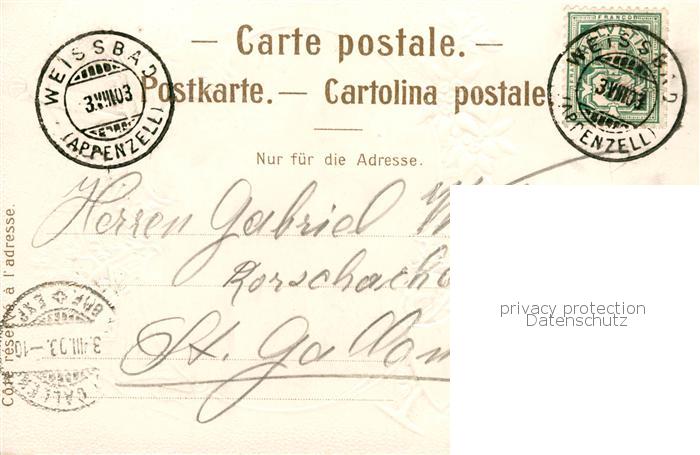 — Carte postale. —
Postkarte. — Cartolina postale
Nur für die Adresse.
WEISSBAD
3.VIII.03
(APPENZELL)
FRANCO
WEISSBAD
3.VIII.03
(APPENZELL)
Herren Gabriel
Rorschach
St. Gallen
Côté réservé à l'adresse.
EXP
3.VIII.03.-10
GALLEN
privacy protection
Datenschutz